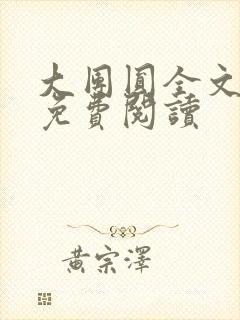 大團圓全文
免費閱讀
黃宗澤